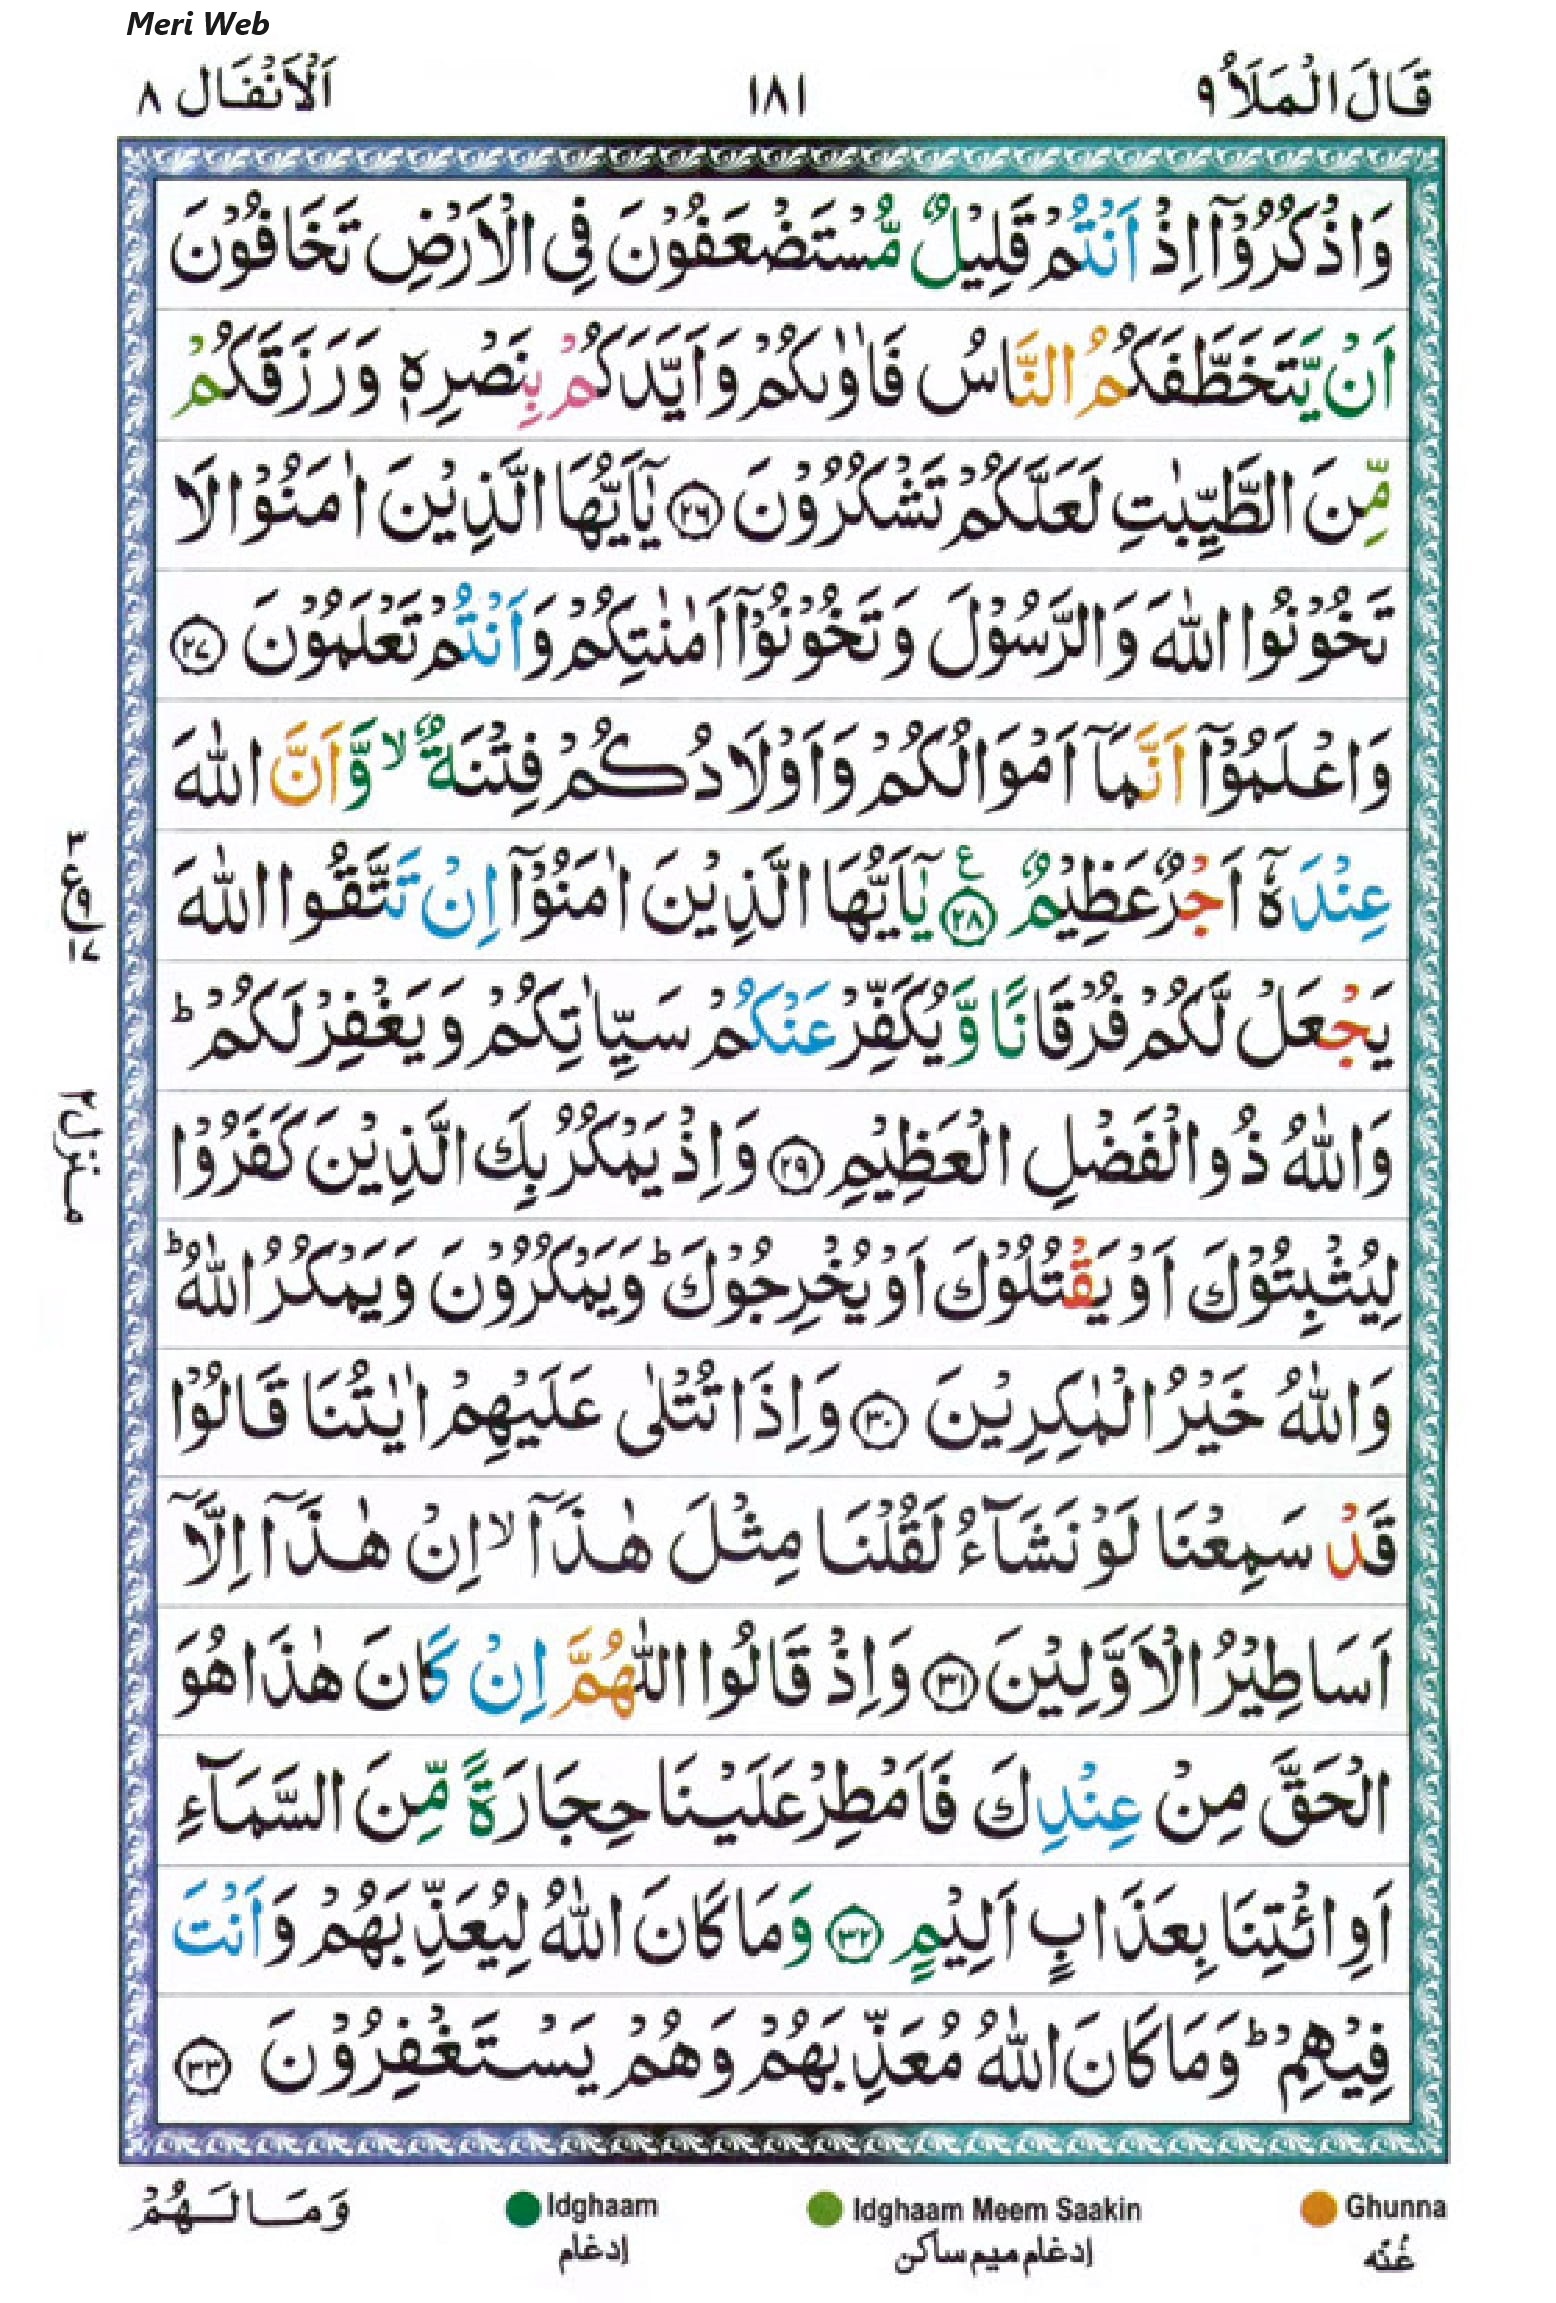 Meri Web
قَالَ الْمَلَاُ ٩
١٨١
اَلْاَنْفَال ٨
وَاذْكُرُوْۤا اِذْ اَنْتُمْ قَلِيْلٌ مُّسْتَضْعَفُوْنَ فِى الْاَرْضِ تَخَافُوْنَ
اَنْ يَّتَخَطَّفَكُمُ النَّاسُ فَاٰوٰىكُمْ وَاَيَّدَكُمْ بِنَصْرِهٖ وَرَزَقَكُمْ
مِّنَ الطَّيِّبٰتِ لَعَلَّكُمْ تَشْكُرُوْنَ ﴿٢٦﴾ يٰۤاَيُّهَا الَّذِيْنَ اٰمَنُوْا لَا
تَخُوْنُوا اللّٰهَ وَالرَّسُوْلَ وَتَخُوْنُوْۤا اَمٰنٰتِكُمْ وَاَنْتُمْ تَعْلَمُوْنَ ﴿٢٧﴾
وَاعْلَمُوْۤا اَنَّمَاۤ اَمْوَالُكُمْ وَاَوْلَادُكُمْ فِتْنَةٌ ۙ وَّاَنَّ اللّٰهَ
عِنْدَهٗۤ اَجْرٌ عَظِيْمٌ ﴿٢٨﴾ ع يٰۤاَيُّهَا الَّذِيْنَ اٰمَنُوْۤا اِنْ تَتَّقُوا اللّٰهَ
يَجْعَلْ لَّكُمْ فُرْقَانًا وَّيُكَفِّرْ عَنْكُمْ سَيِّاٰتِكُمْ وَيَغْفِرْ لَكُمْ ؕ
وَاللّٰهُ ذُو الْفَضْلِ الْعَظِيْمِ ﴿٢٩﴾ وَاِذْ يَمْكُرُ بِكَ الَّذِيْنَ كَفَرُوْا
لِيُثْبِتُوْكَ اَوْ يَقْتُلُوْكَ اَوْ يُخْرِجُوْكَ ؕ وَيَمْكُرُوْنَ وَيَمْكُرُ اللّٰهُ ؕ
وَاللّٰهُ خَيْرُ الْمٰكِرِيْنَ ﴿٣٠﴾ وَاِذَا تُتْلٰى عَلَيْهِمْ اٰيٰتُنَا قَالُوْا
قَدْ سَمِعْنَا لَوْ نَشَآءُ لَقُلْنَا مِثْلَ هٰذَاۤ ۙ اِنْ هٰذَاۤ اِلَّاۤ
اَسَاطِيْرُ الْاَوَّلِيْنَ ﴿٣١﴾ وَاِذْ قَالُوا اللّٰهُمَّ اِنْ كَانَ هٰذَا هُوَ
الْحَقَّ مِنْ عِنْدِكَ فَاَمْطِرْ عَلَيْنَا حِجَارَةً مِّنَ السَّمَآءِ
اَوِ ائْتِنَا بِعَذَابٍ اَلِيْمٍ ﴿٣٢﴾ وَمَا كَانَ اللّٰهُ لِيُعَذِّبَهُمْ وَاَنْتَ
فِيْهِمْ ؕ وَمَا كَانَ اللّٰهُ مُعَذِّبَهُمْ وَهُمْ يَسْتَغْفِرُوْنَ ﴿٣٣﴾
٣
ع ٩
١٧
منزل ٢
وَمَا لَهُمْ
Idghaam
إدغام
Idghaam Meem Saakin
إدغام ميم ساكن
Ghunna
غُنّه